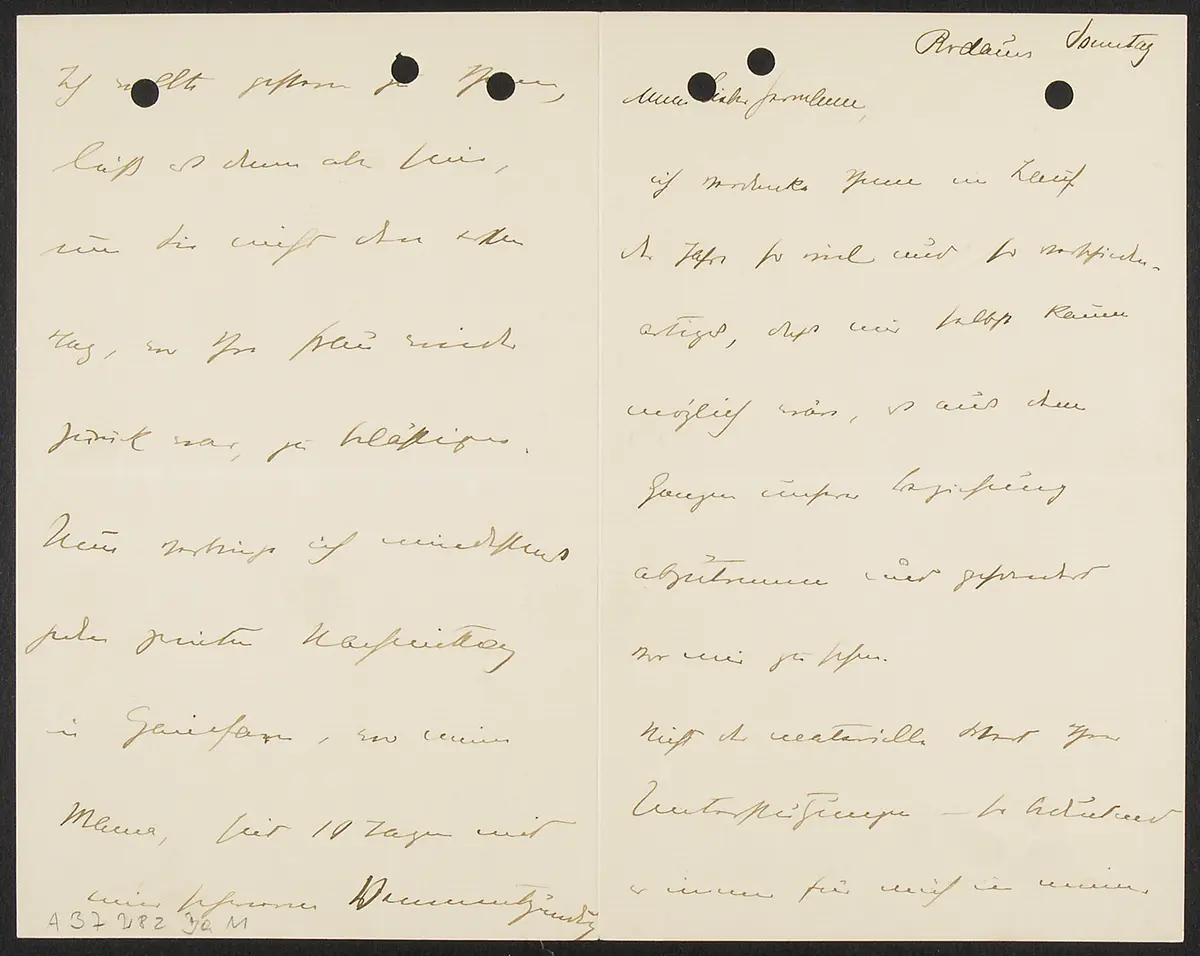 Rodaun Sonntag
Mein lieber
ich verdanke Ihnen im Lauf
der Jahre so viel und so verschieden-
artiges, dass mir selbst kaum
möglich wäre, es aus dem
Ganzen unserer Beziehung
abzutrennen und gesondert
vor mir zu sehen.
Nicht der materielle Wert Ihrer
Unterstützungen – so bedeutend
er immer für mich in meiner
Ich wollte gestern zu Ihnen,
ließ es dann aber sein,
um Sie nicht den ersten
Tag, wo Ihre Frau wieder
zurück war, zu belästigen.
Nun verbringe ich mindestens
jeden zweiten Nachmittag
in Gainfarn, wo meine
Mama, seit 10 Tagen mit
einer schweren